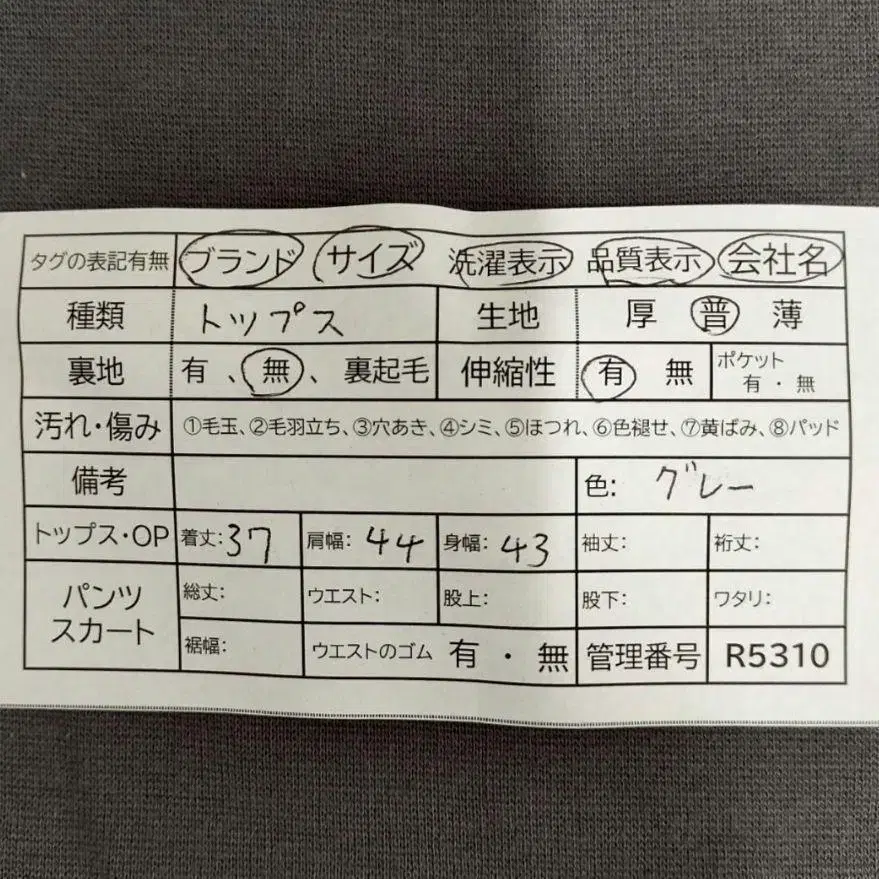 タグの表記有無 ブランド サイズ 洗濯表示 品質表示 会社名
種類 トップス 生地 厚 普 薄
裏地 有 、無 、裏起毛 伸縮性 有 無 ポケット 有・無
汚れ・傷み ①毛玉、②毛羽立ち、③穴あき、④シミ、⑤ほつれ、⑥色褪せ、⑦黄ばみ、⑧パッド
備考 色: グレー
トップス・OP 着丈:37 肩幅: 44 身幅: 43 袖丈: 裄丈:
パンツ スカート 総丈: ウエスト: 股上: 股下: ワタリ:
裾幅: ウエストのゴム 有 ・ 無 管理番号 R5310